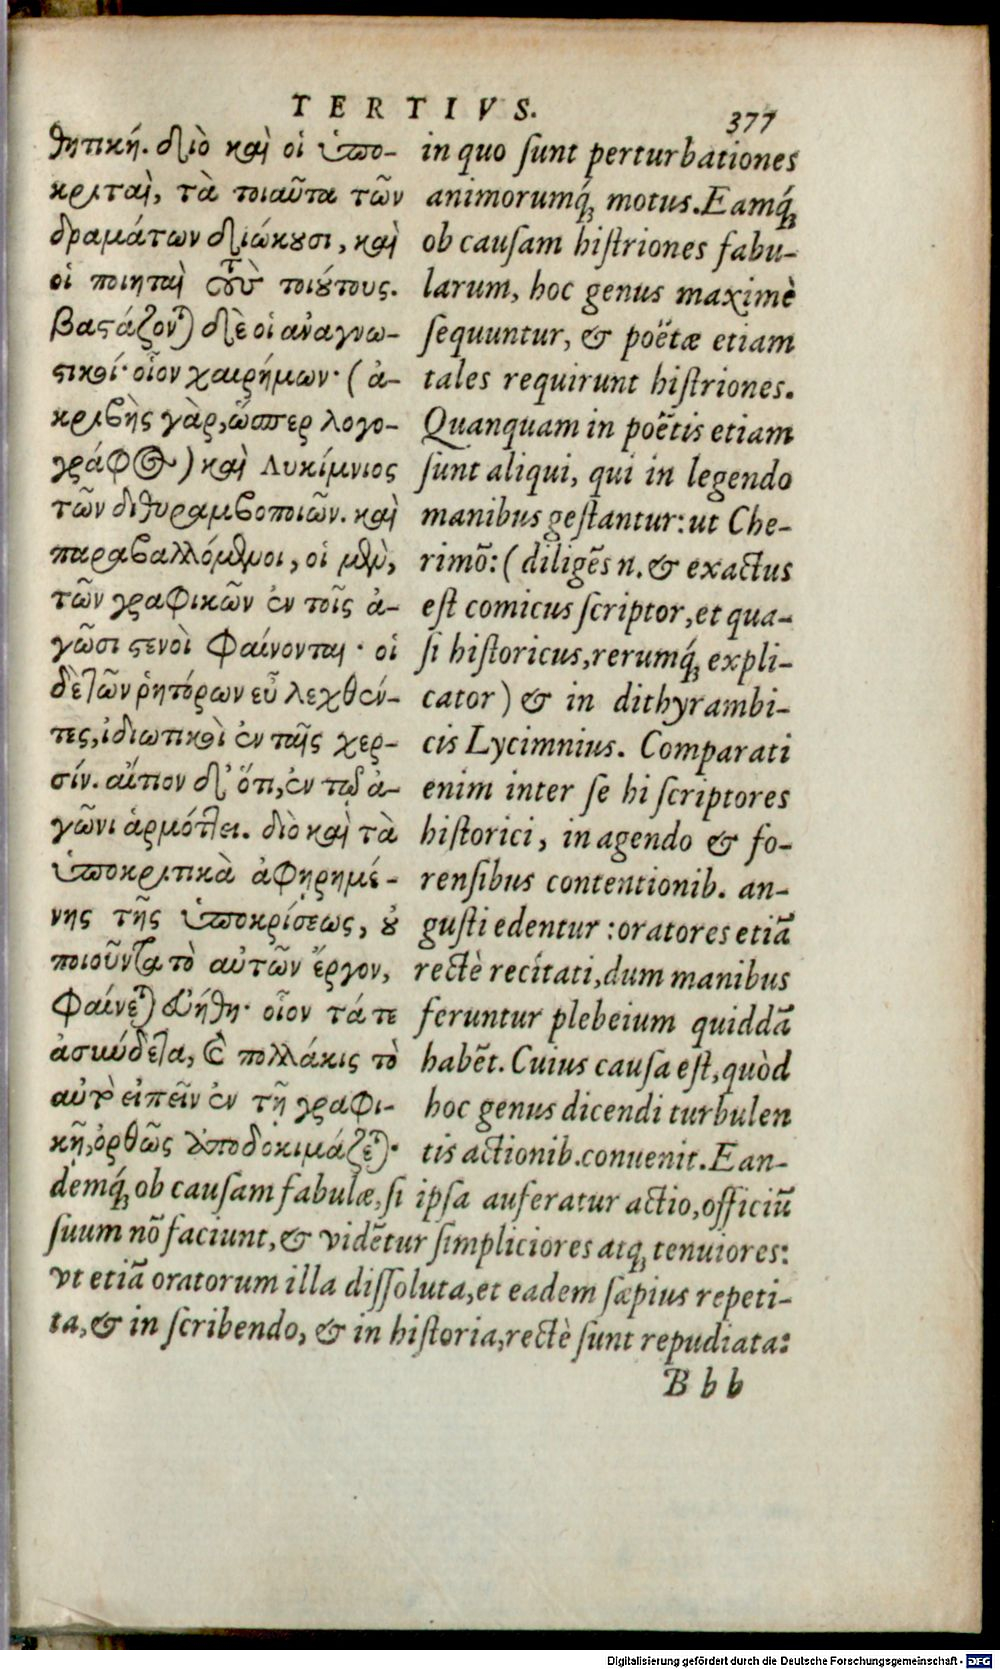 TERTIVS.
377
θητική. διὸ καὶ οἱ ὑπο-
κριταὶ, τὰ τοιαῦτα τῶν
δραμάτων διώκουσι, καὶ
οἱ ποιηταὶ τοὺς τοιούτους.
βαστάζονται δὲ οἱ ἀναγνω-
στικοί· οἷον χαιρήμων· (ἀ-
κριβὴς γὰρ, ὥσπερ λογο-
γράφος) καὶ Λυκίμνιος
τῶν διθυραμβοποιῶν. καὶ
παραβαλλόμενοι, οἱ μὲν,
τῶν γραφικῶν ἐν τοῖς ἀ-
γῶσι στενοὶ φαίνονται· οἱ
δὲ τῶν ῥητόρων εὖ λεχθέν-
τες, ἰδιωτικοὶ ἐν ταῖς χερ-
σίν. αἴτιον δ' ὅτι, ἐν τῷ ἀ-
γῶνι ἁρμόττει. διὸ καὶ τὰ
ὑποκριτικὰ ἀφῃρημέ-
νης τῆς ὑποκρίσεως, οὐ
ποιοῦντα τὸ αὑτῶν ἔργον,
φαίνεται εὐήθη· οἷον τά τε
ἀσύνδετα, καὶ πολλάκις τὸ
αὐτὸ εἰπεῖν ἐν τῇ γραφι-
κῇ, ὀρθῶς ἀποδοκιμάζεται·
in quo ſunt perturbationes
animorumq́; motus. Eamq́;
ob cauſam hiſtriones fabu-
larum, hoc genus maximè
ſequuntur, & poëtæ etiam
tales requirunt hiſtriones.
Quanquam in poëtis etiam
ſunt aliqui, qui in legendo
manibus geſtantur: ut Che-
rimō: (diligẽs n. & exactus
eſt comicus ſcriptor, et qua-
ſi hiſtoricus, rerumq́; expli-
cator) & in dithyrambi-
cis Lycimnius. Comparati
enim inter ſe hi ſcriptores
hiſtorici, in agendo & fo-
renſibus contentionib. an-
guſti edentur: oratores etiã
rectè recitati, dum manibus
feruntur plebeium quiddã
habẽt. Cuius cauſa eſt, quòd
hoc genus dicendi turbulen
tis actionib. conuenit. Ean-
demq́; ob cauſam fabulæ, ſi ipſa auferatur actio, officiũ
ſuum nō faciunt, & vidẽtur ſimpliciores atq; tenuiores:
vt etiã oratorum illa diſſoluta, et eadem ſæpius repeti-
ta, & in ſcribendo, & in hiſtoria, rectè ſunt repudiata:
B b b
Digitalisierung gefördert durch die Deutsche Forschungsgemeinschaft - DFG